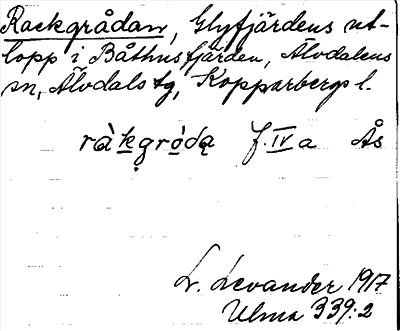 Rackgrådan, Glyfjärdens ut-
lopp i Båthusfjärden, Älvdalens
sn, Älvdals tg, Kopparbergs l.
ràk̲gró̲dą f. IV a Ås
L. Levander 1917
Ulma 339:2